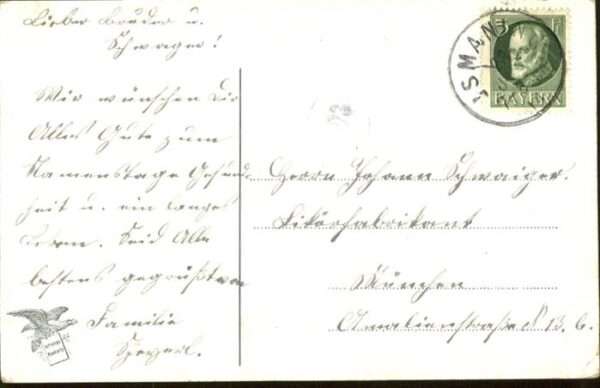 Lieber Bruder u.
Schwager!
Wir wünschen Dir
Alles Gute zum
Namenstage Gesund-
heit u. ein langes
Leben. Seid Alle
bestens gegrüßt von
Familie
3 BAYERN
ISMANIN
Herrn Johann Schwaiger.
Likörfabrikant
München
Amalienstraße 13. C.